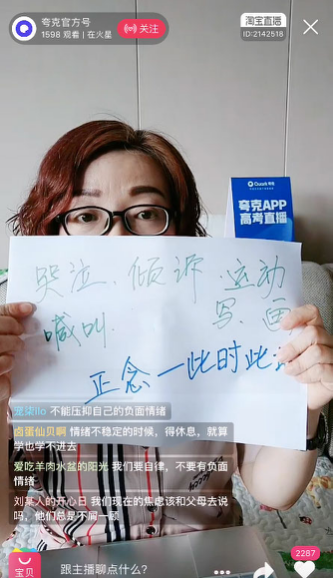 夸克官方号
1598 观看 | 在火星
关注
淘宝直播
ID:2142518
Quark 夸克
夸克APP
高考直播
哭泣、倾诉、运动
喊叫. 写、画
正念—此时此
宠柒llo 不能压抑自己的负面情绪
卤蛋仙贝啊 情绪不稳定的时候，得休息，就算
学也学不进去
爱吃羊肉水盆的阳光 我们要自律，不要有负面
情绪
刘某人的开心日 我们现在的焦虑该和父母去说
吗，他们总是不屑一顾
2287
宝贝
跟主播聊点什么?